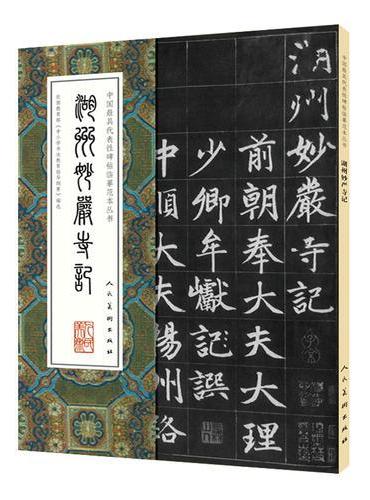 湖州妙嚴寺記
中国最具代表性碑帖临摹范本丛书
依照教育部《中小学书法教育指导纲要》编选
人民美术出版社
湖州妙嚴寺記
前朝奉大夫大理
少卿牟巘記譔
中順大夫揚州路
中国最具代表性碑帖临摹范本丛书
湖州妙严寺记
人民美术出版社